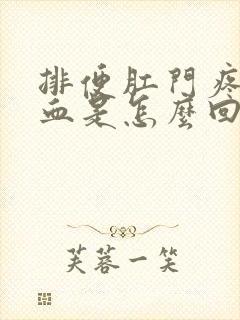 排便肛門疼
血是怎麼回
芙蓉一笑